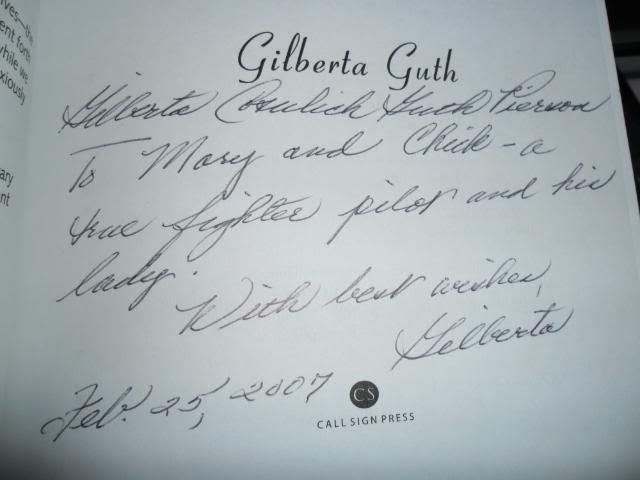 ives—the
ent forth
while we
xiously
ary
nt
Gilberta Guth
Gilberta Cosulich Guth Pierson
To Mary and Chick - a
true fighter pilot and his
lady.
With best wishes,
Gilberta
Feb. 25, 2007
CS
CALL SIGN PRESS